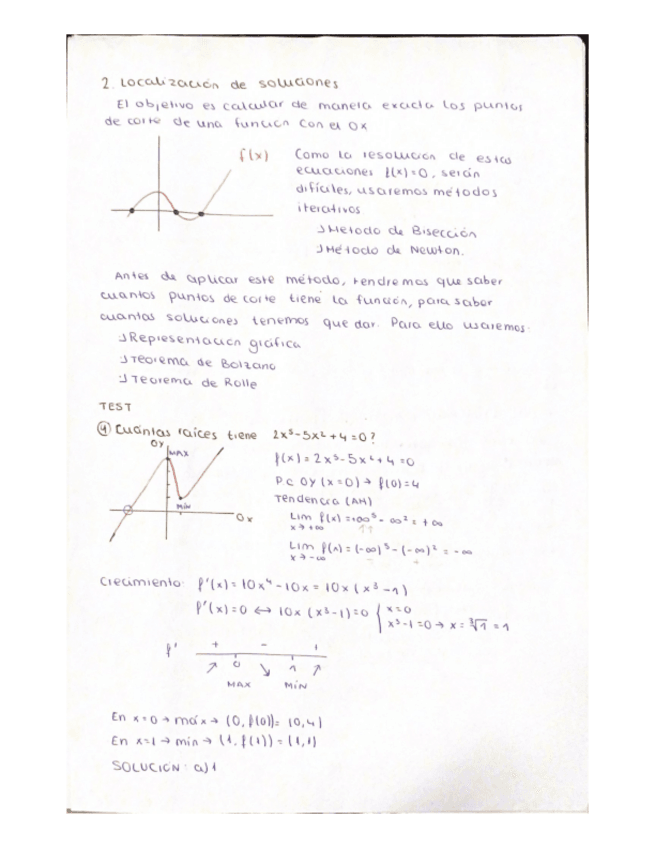 2. Localización de soluciones
El objetivo es calcular de manera exacta los puntos
de corte de una función con el OX
f(x)
Como la resolución de estas
ecuaciones f(x)=0, serán
difíciles, usaremos métodos
iterativos
Método de Bisección
Método de Newton.
Antes de aplicar este método, tendremos que saber
cuantos puntos de corte tiene la función, para saber
cuantas soluciones tenemos que dar. Para ello usaremos:
Representación gráfica
Teorema de Bolzano
Teorema de Rolle
TEST
4 Cuántas raíces tiene 2x⁵-5x²+4=0?
Oy
MAX
MÍN
Ox
f(x)=2x⁵-5x²+4=0
P.C OY (x=0) → f(0)=4
Tendencia (AH)
Lim f(x)=+∞⁵-∞²=+∞
x→+∞
Lim f(x)=(-∞)⁵-(-∞)²=-∞
x→-∞
Crecimiento: f'(x)=10x⁴-10x=10x(x³-1)
f'(x)=0 ↔ 10x(x³-1)=0 { x=0
x³-1=0 → x=∛1=1
f' + - +
↗ 0 ↘ 1 ↗
MAX MÍN
En x=0 → máx → (0, f(0))= (0,4)
En x=1 → mín → (1, f(1))=(1,1)
SOLUCIÓN: a) 1